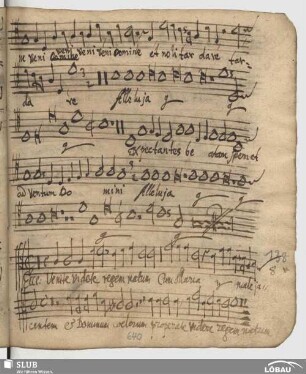 ni Veni Domine veni Veni Veni Domine et noli tardare tar-
da re Alleluja
Expectantes be atam spem et
ad ventum Do mini Alleluja
Ecce Venite Videte regem natum Cum Maria
cantem et Dominum coelorum properate Videte regem natum
118
8
640
SLUB
LÖBAU